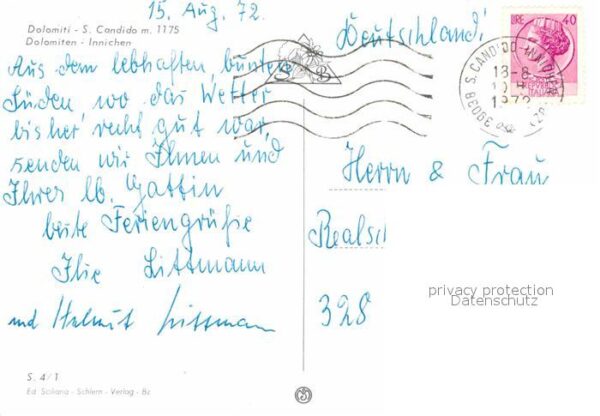 15. Aug. 72.
Dolomiti - S. Candido m. 1175
Dolomiten - Innichen
Aus dem lebhaften, bunten
Süden wo das Wetter
bisher recht gut war,
senden wir Ihnen und
Ihrer lb. Gattin
beste Feriengrüße
Ilse Littmann
und Helmut Littmann
S. 4/1
Ed. Siciliana - Schlern - Verlag - Bz
Deutschland!
LIRE 40
39038 S. CANDIDO-INNICHEN (BZ)
18-8
1972
Herrn & Frau
Realsc
328
privacy protection
Datenschutz